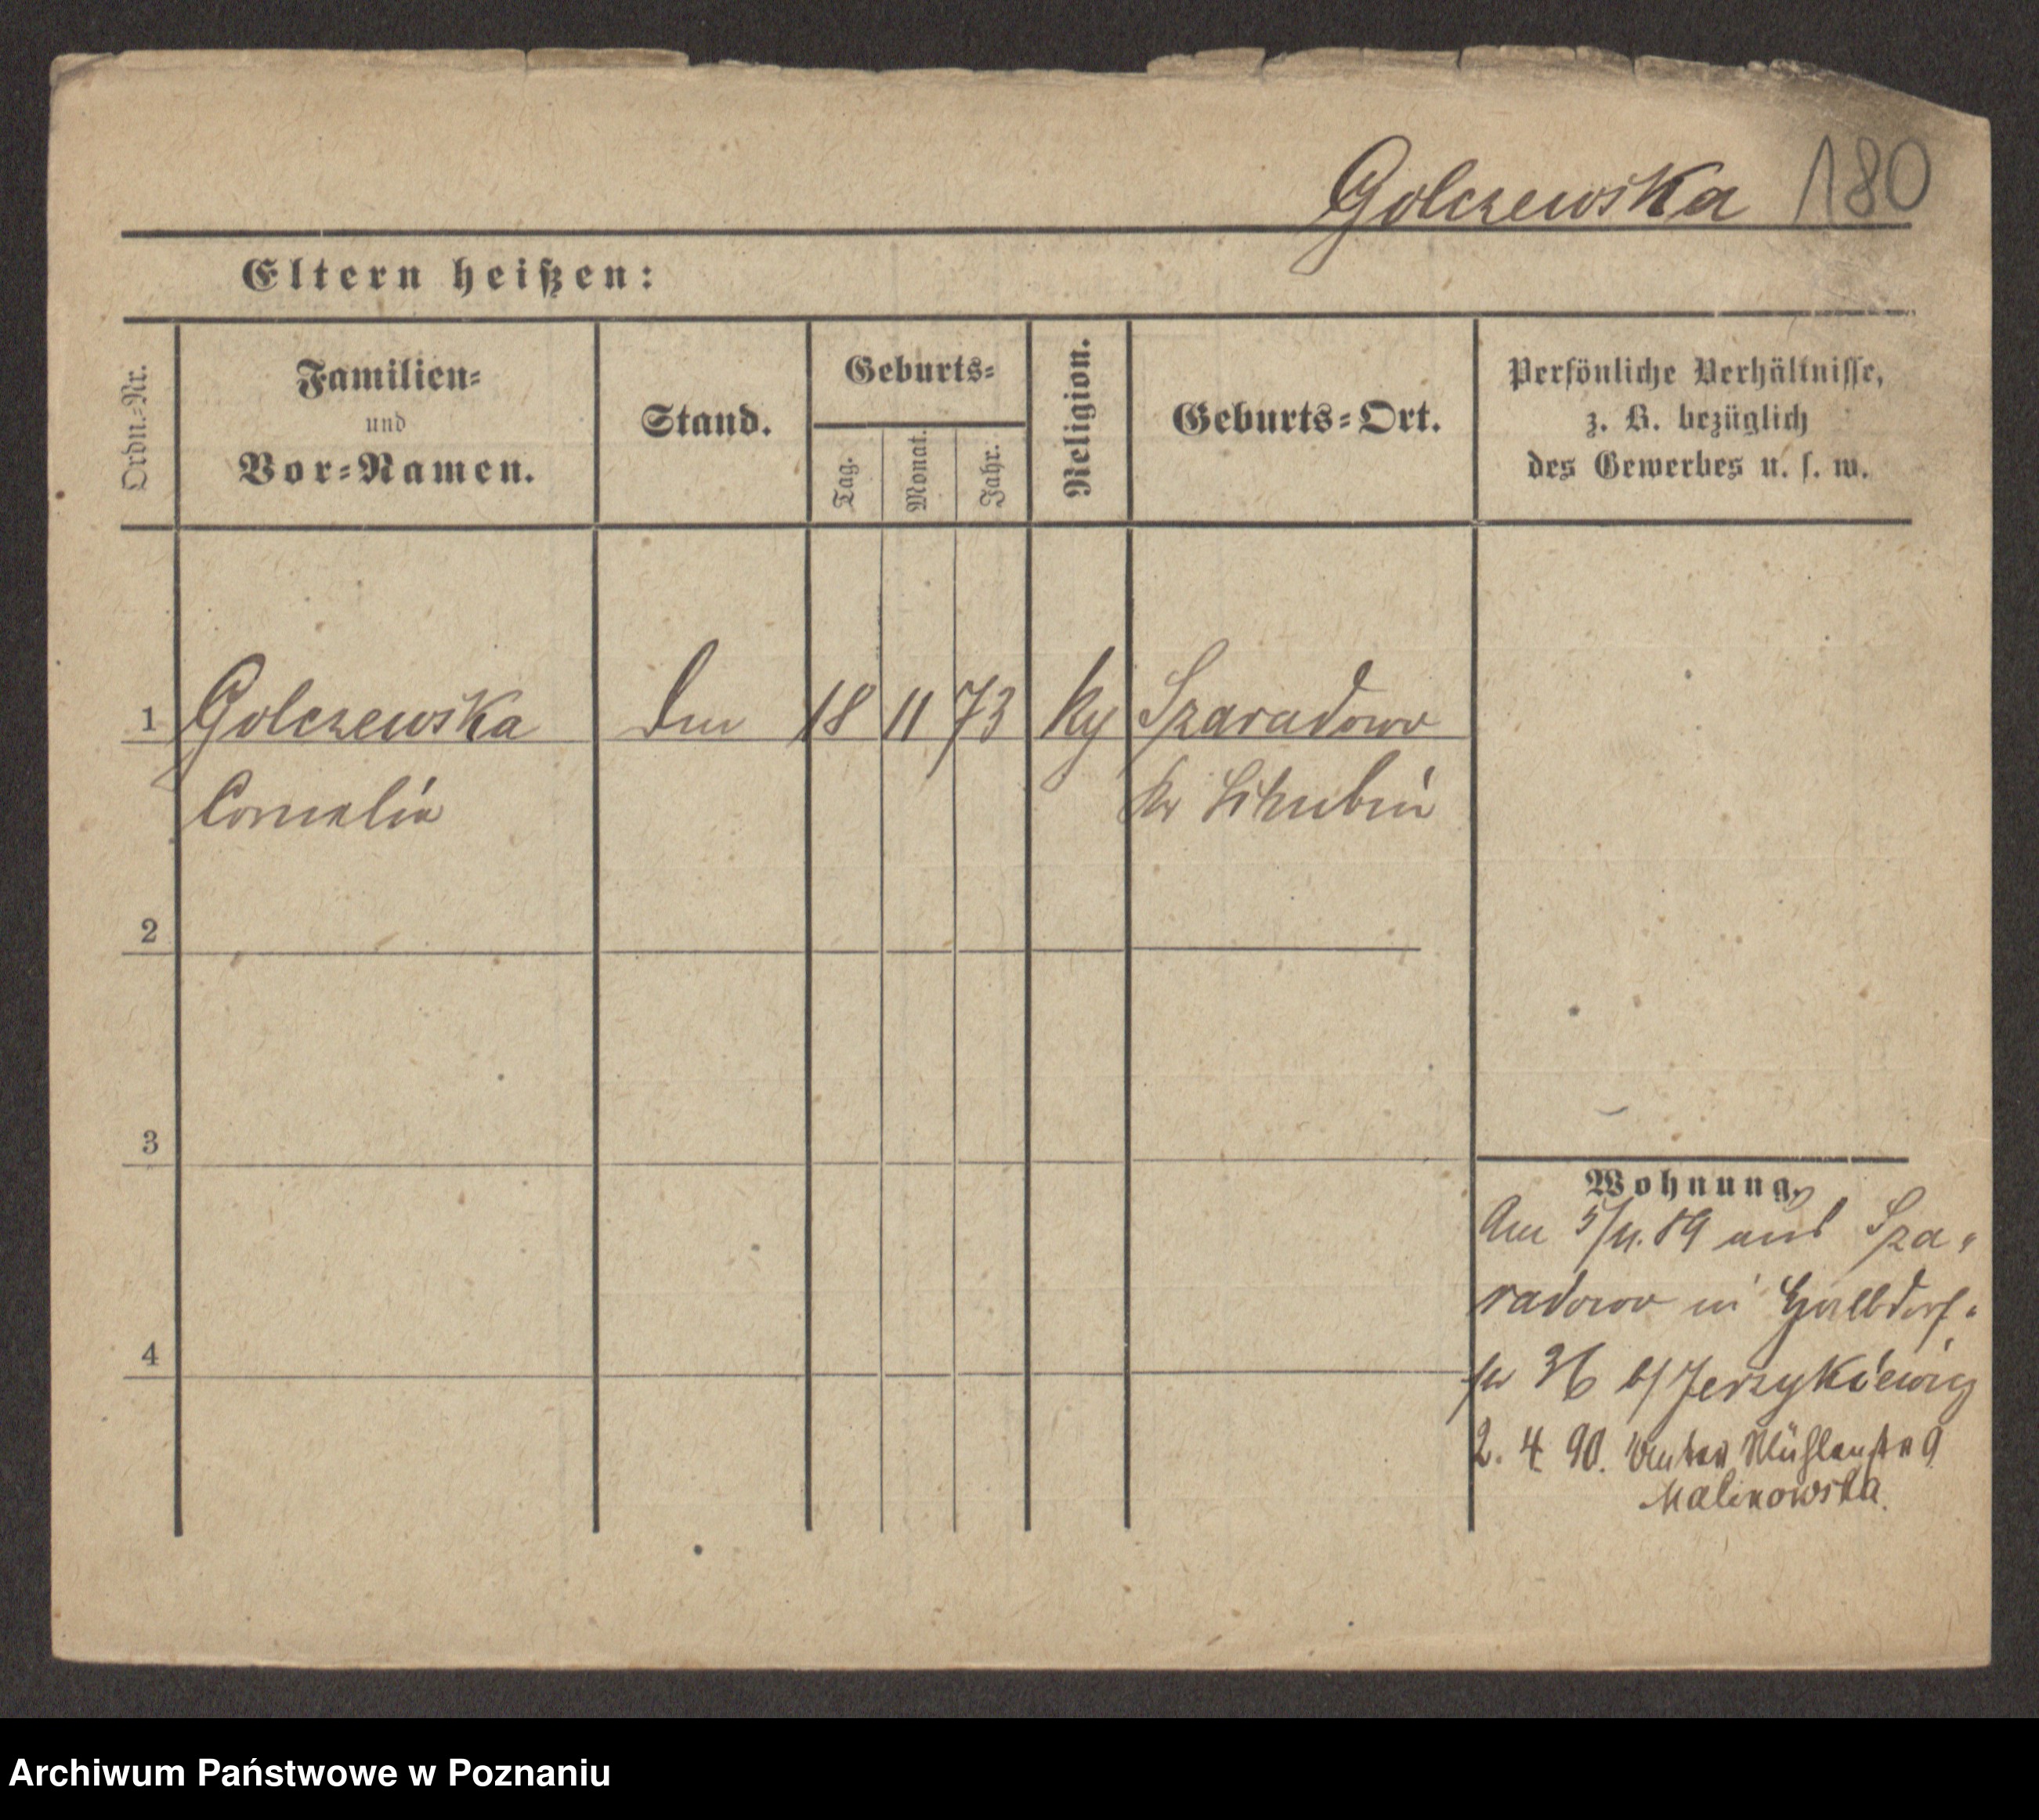 Golczewska 180
Eltern heißen:
Ordn.-Nr.
Familien-
und
Vor-Namen.
Stand.
Geburts-
Tag.
Monat.
Jahr.
Religion.
Geburts-Ort.
Persönliche Verhältnisse,
z. B. bezüglich
des Gewerbes u. s. w.
1 Golczewska 18 11 73 Szaradowo
Cornelia Kr Schubin
2
3
4
Wohnung.
Am 5/11. 89 aus Sza-
radowo in Halbdorf-
str 36 b/ Jerzykiewicz
2. 4. 90. Mühlenstr 9
Malinowska.
Archiwum Państwowe w Poznaniu